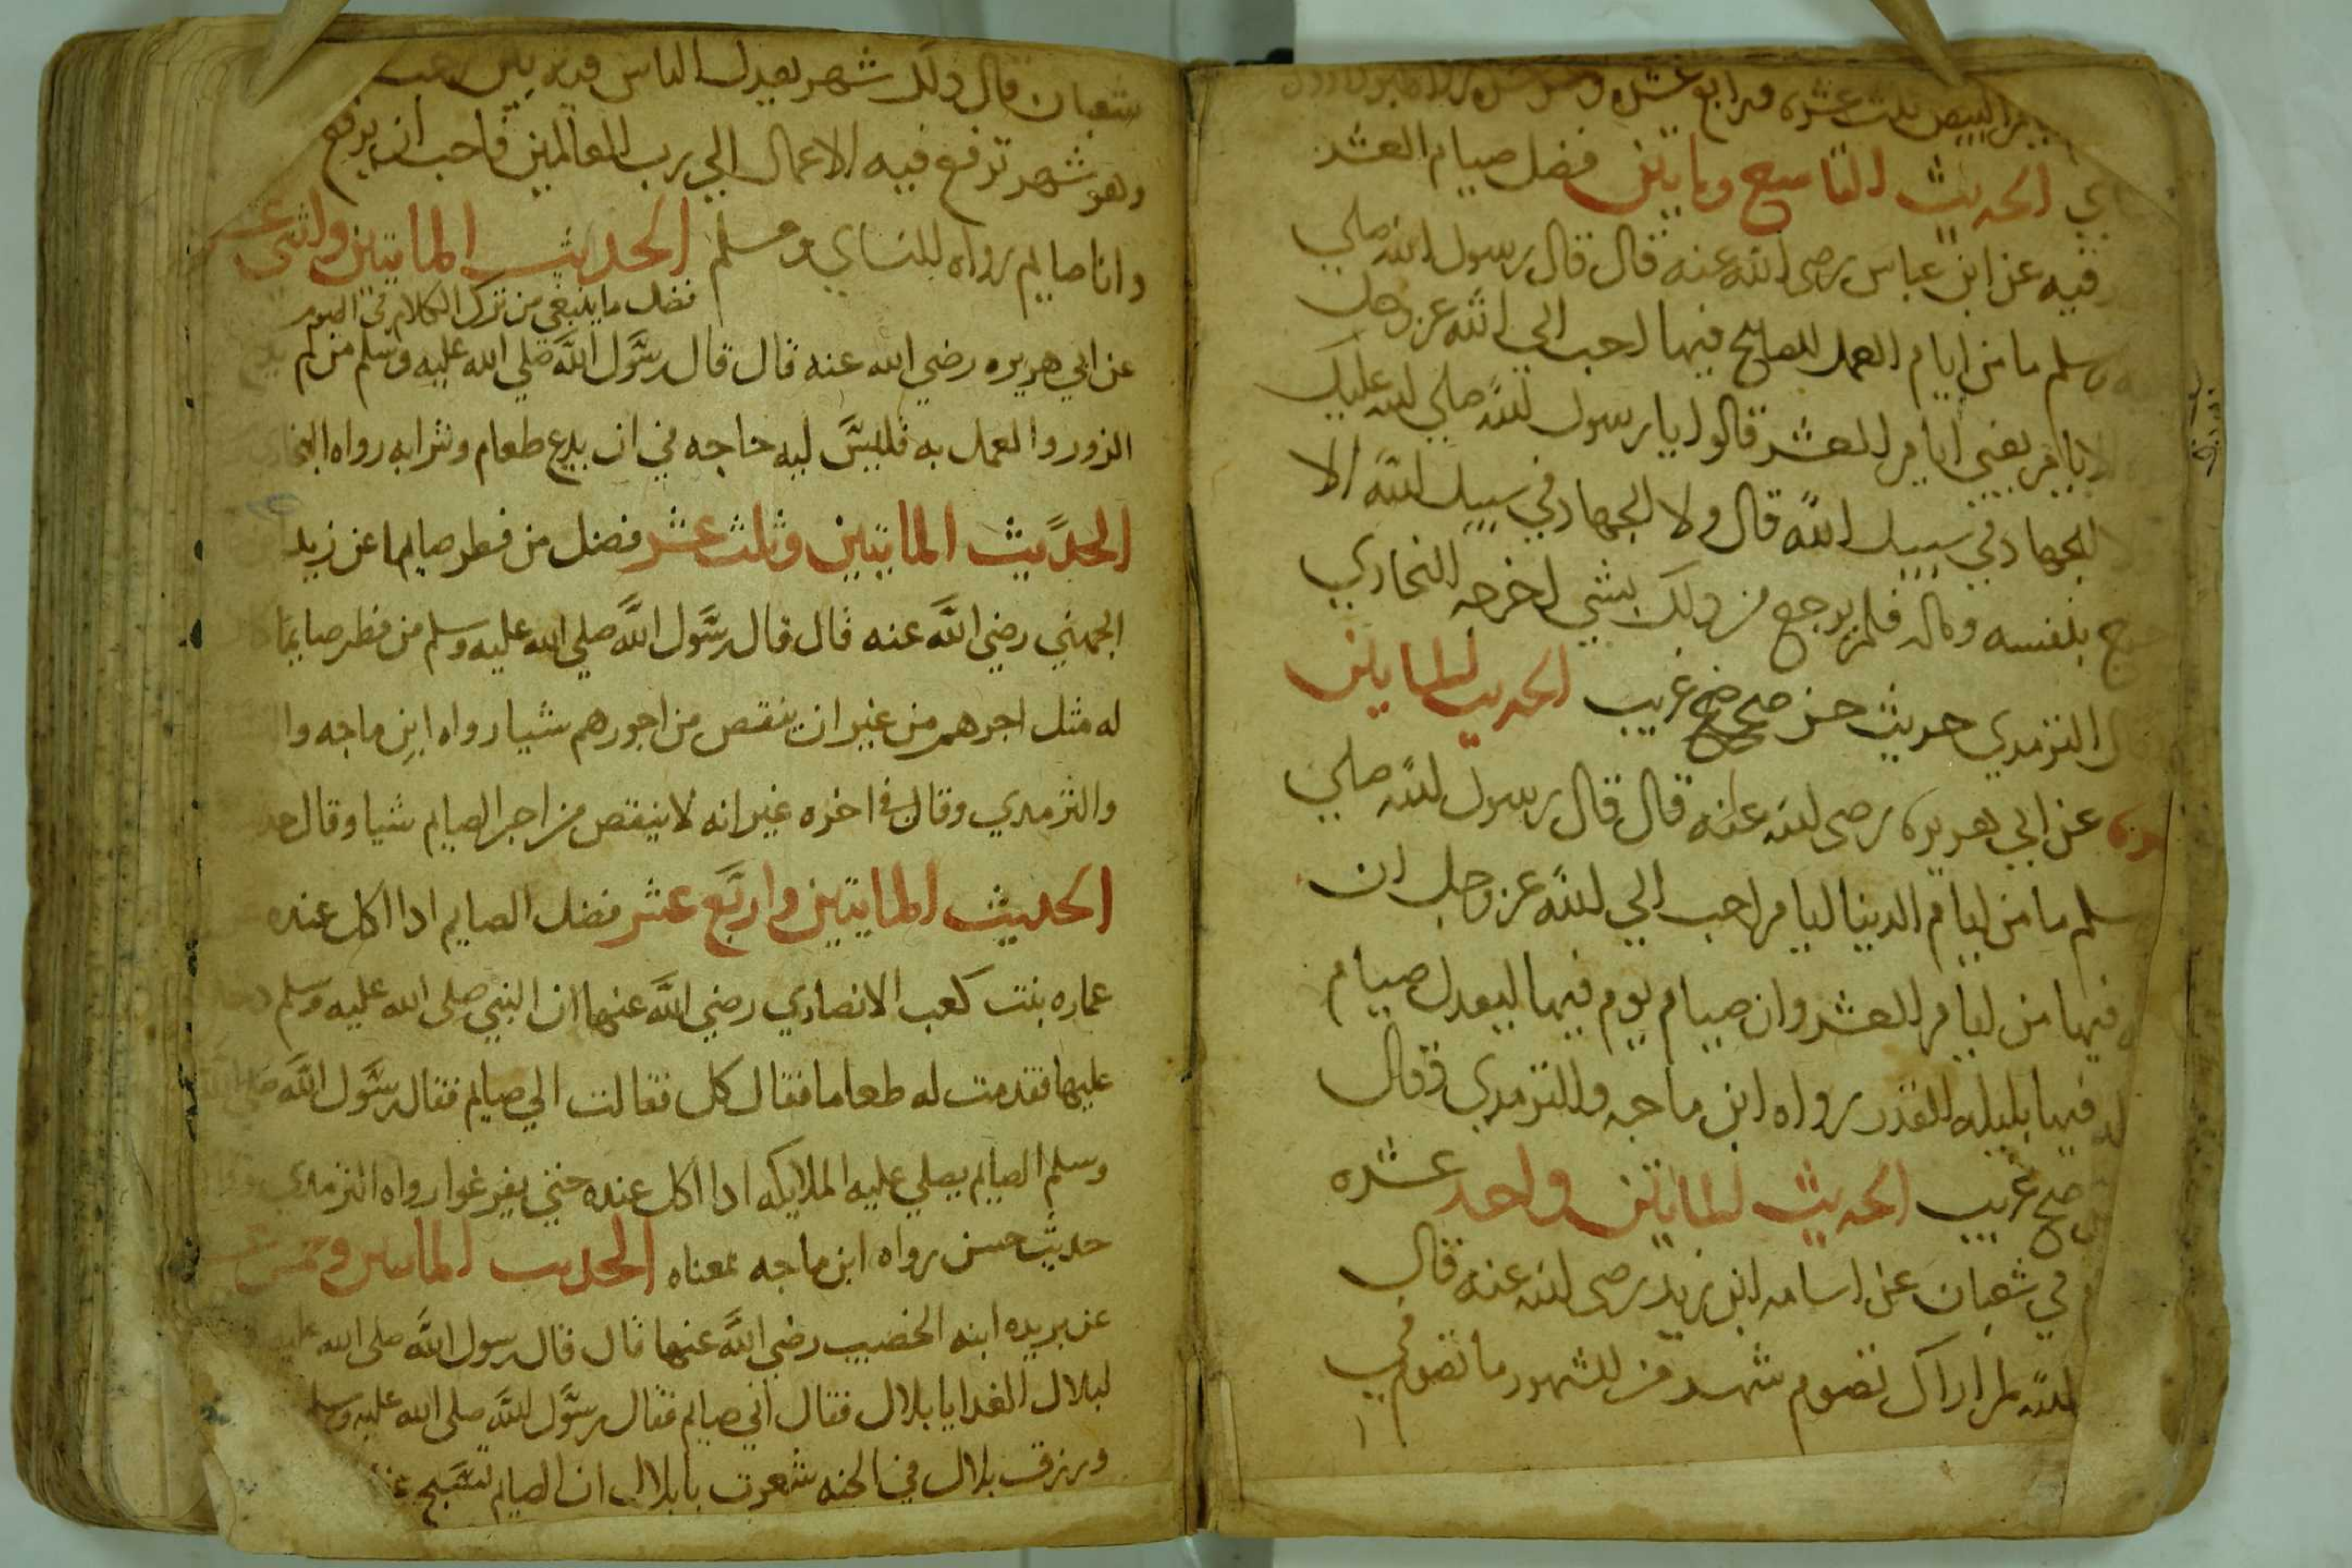 البيض ثلث عشره ورابع عشره
الحديث التاسع ومايتين فضل صيام العشر
فيه عن ابن عباس رضى الله عنه قال قال رسول الله صلي
وسلم ما من ايام العمل الصالح فيها احب الي الله عز وجل
الايام يعني ايام العشر قالوا يا رسول الله صلي الله عليك
الجهاد في سبيل الله قال ولا الجهاد في سبيل الله الا
خرج بنفسه وماله فلم يرجع من ذلك بشي اخرجه البخاري
الترمدي حديث حسن صحيح غريب الحديث المايتين
عن ابي هريره رضى الله عنه قال قال رسول الله صلي
سلم ما من ايام الدنيا ايام احب الي الله عز وجل ان
فيها من ايام العشر وان صيام يوم فيها ليعدل صيام
فيها بليله القدر رواه ابن ماجه والترمدي وقال
غريب الحديث المايتين واحد عشره
في شعبان عن اسامه ابن زيد رضى الله عنه قال
الله لم اراك تصوم شهر من الشهور ما تصوم في
شعبان قال ذلك شهر يغفل الناس فيه بين
وهو شهر ترفع فيه الاعمال الي رب العالمين فاحب ان يرفع
وانا صايم رواه النساي ومسلم الحديث المايتين واثني عشر
فضل ما ينبغي من ترك الكلام في الصوم
عن ابي هريره رضي الله عنه قال قال رسول الله صلي الله عليه وسلم من لم
الزور والعمل به فليس لله حاجه في ان يدع طعام وشرابه رواه البخاري
الحديث المايتين وثلث عشر فضل من فطر صايما عن زيد
الجهني رضي الله عنه قال قال رسول الله صلي الله عليه وسلم من فطر صايما
له مثل اجرهم من غير ان ينقص من اجورهم شيا رواه ابن ماجه وا
والترمدي وقال في اخره غير انه لا ينقص من اجر الصايم شيا وقال
الحديث المايتين واربع عشر فضل الصايم ادا اكل عنده
عماره بنت كعب الانصاري رضي الله عنها ان النبي صلى الله عليه وسلم دخل
عليها فقدمت له طعاما فقال كل فقالت اني صايم فقال رسول الله صلي الله
وسلم الصايم يصلي عليه الملايكه ادا اكل عنده حتي يفرغوا رواه الترمدي
حديث حسن رواه ابن ماجه بمعناه الحديث المايتين وخمس عشر
عن بريده ابنه الخصيب رضي الله عنها قال قال رسول الله صلى الله عليه
لبلال الغدا يا بلال فقال اني صايم فقال رسول الله صلى الله عليه وسلم
ورزق بلال في الجنه شعرت يا بلال ان الصايم لتسبح